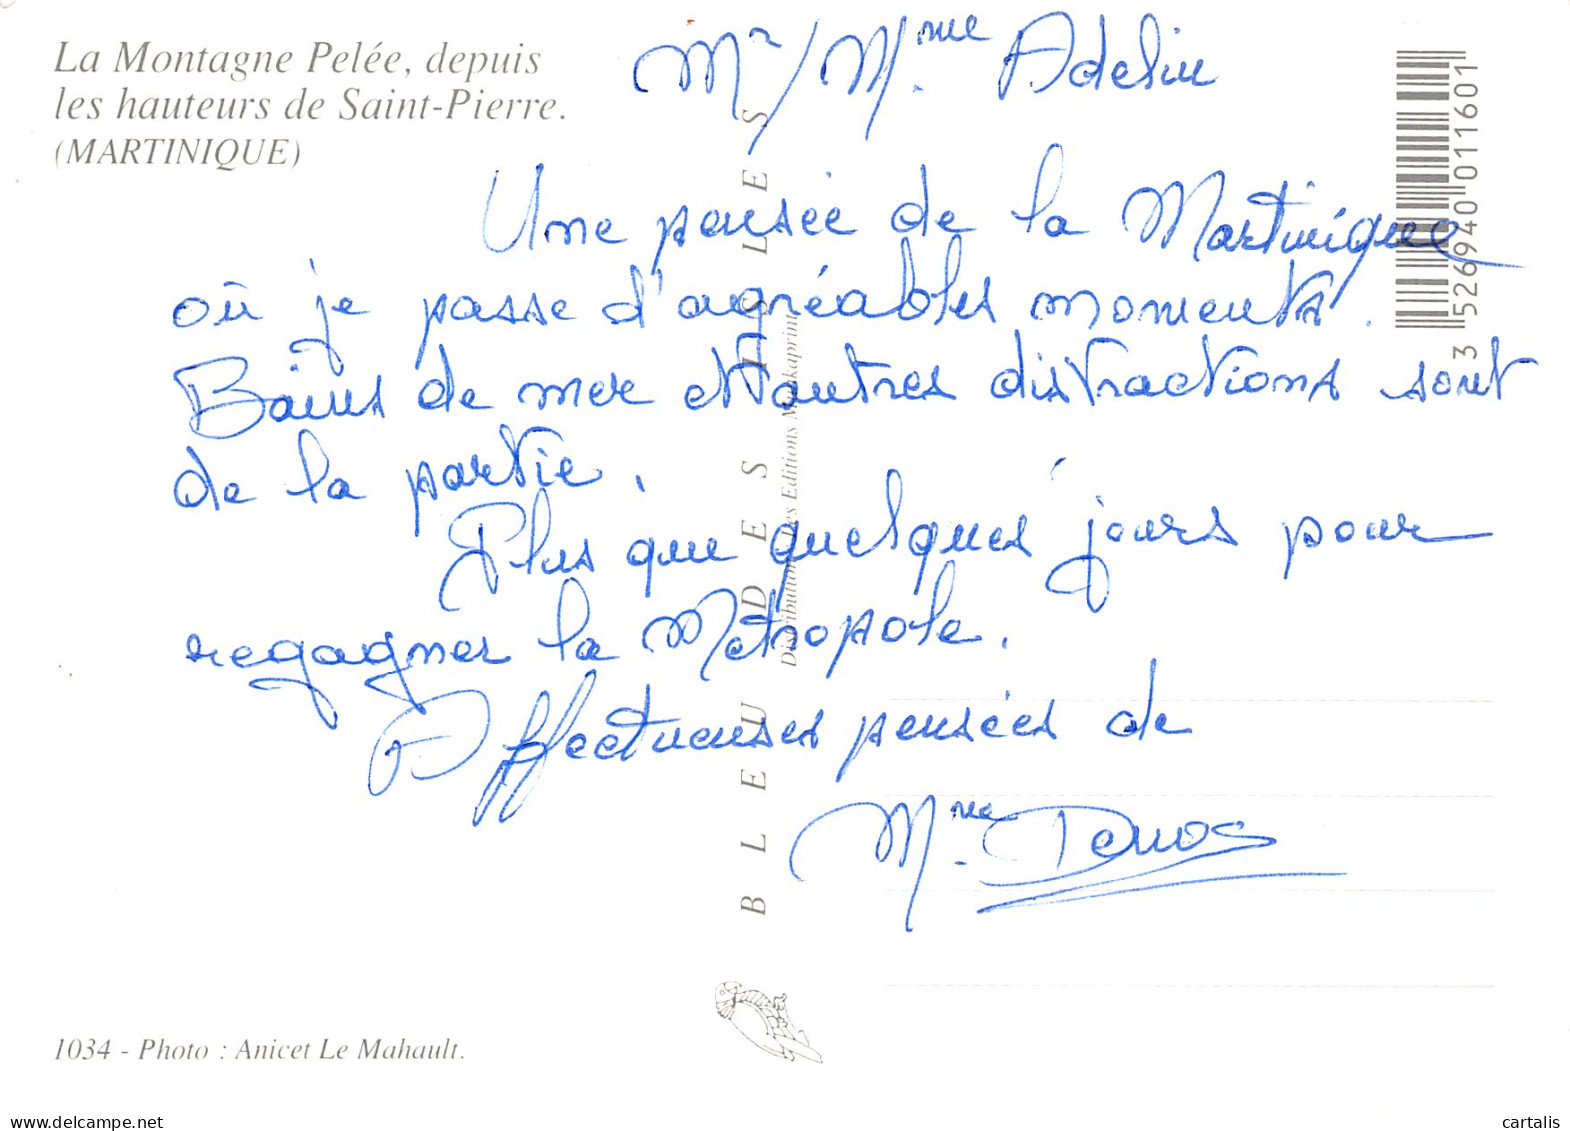 La Montagne Pelée, depuis
les hauteurs de Saint-Pierre.
(MARTINIQUE)
Mr / Mme Adelin
Une pensée de la Martinique
où je passe d'agréables moments.
Bains de mer et autres distractions sont
de la partie.
Plus que quelques jours pour
regagner la Métropole.
Affectueuses pensées de
Mme
BLEU DES ISLES
Distribution : Les Editions Maskaprint
3 526940 011601
1034 - Photo : Anicet Le Mahault.
delcampe.net
cartalis